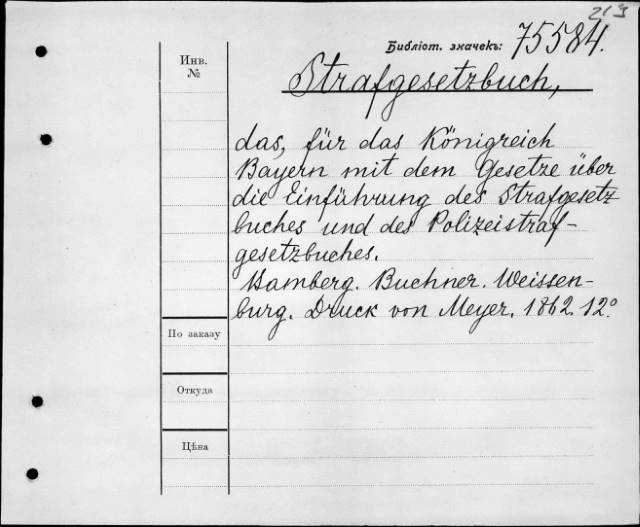 213
Библіот. значекъ: 75584.
Инв.
№
Strafgesetzbuch,
das, für das Königreich
Bayern mit dem Gesetze über
die Einführung des Strafgesetz
buches und des Polizeistraf-
gesetzbuches.
Bamberg. Buchner. Weissen-
burg. Druck von Meyer. 1862. 12°.
По заказу
Откуда
Цѣна